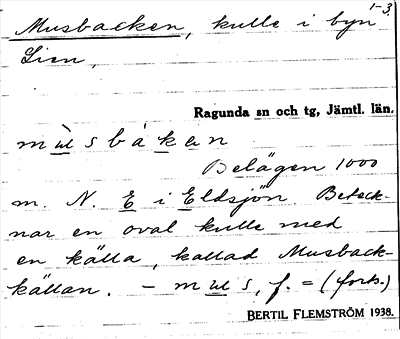 1-3.
Musbacken, kulle i byn
Lien,
Ragunda sn och tg, Jämtl. län.
mùsbáken
Belägen 1000
m. N. E i Eldsjön. Beteck-
nar en oval kulle med
en källa, kallad Musback-
källan. – mus, f. = (forts.)
BERTIL FLEMSTRÖM 1938.